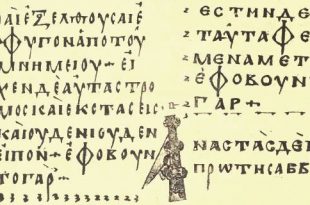 ΑΙΕΞΕΛΘΟΥϹΑΙΕ
ΦΥΓΟΝΑΠΟΤΟΥ
ΜΝΗΜΕΙΟΥ+ΕΙ
ΧΕΝΔΕΑΥΤΑϹΤΡΟ
ΜΟϹΚΑΙΕΚϹΤΑϹΕΙϹ
ΚΑΙΟΥΔΕΝΙΟΥΔΕΝ
ΕΙΠΟΝ+ΕΦΟΒΟΥΝ
ΤΟΓΑΡ+
ΕϹΤΙΝΔΕ
ΤΑΥΤΑΦΕ
ΜΕΝΑΜΕΤ
ΕΦΟΒΟΥΝ
ΓΑΡ+
ΑΝΑϹΤΑϹΔΕ
ΠΡΩΤΗϹΑΒΒ